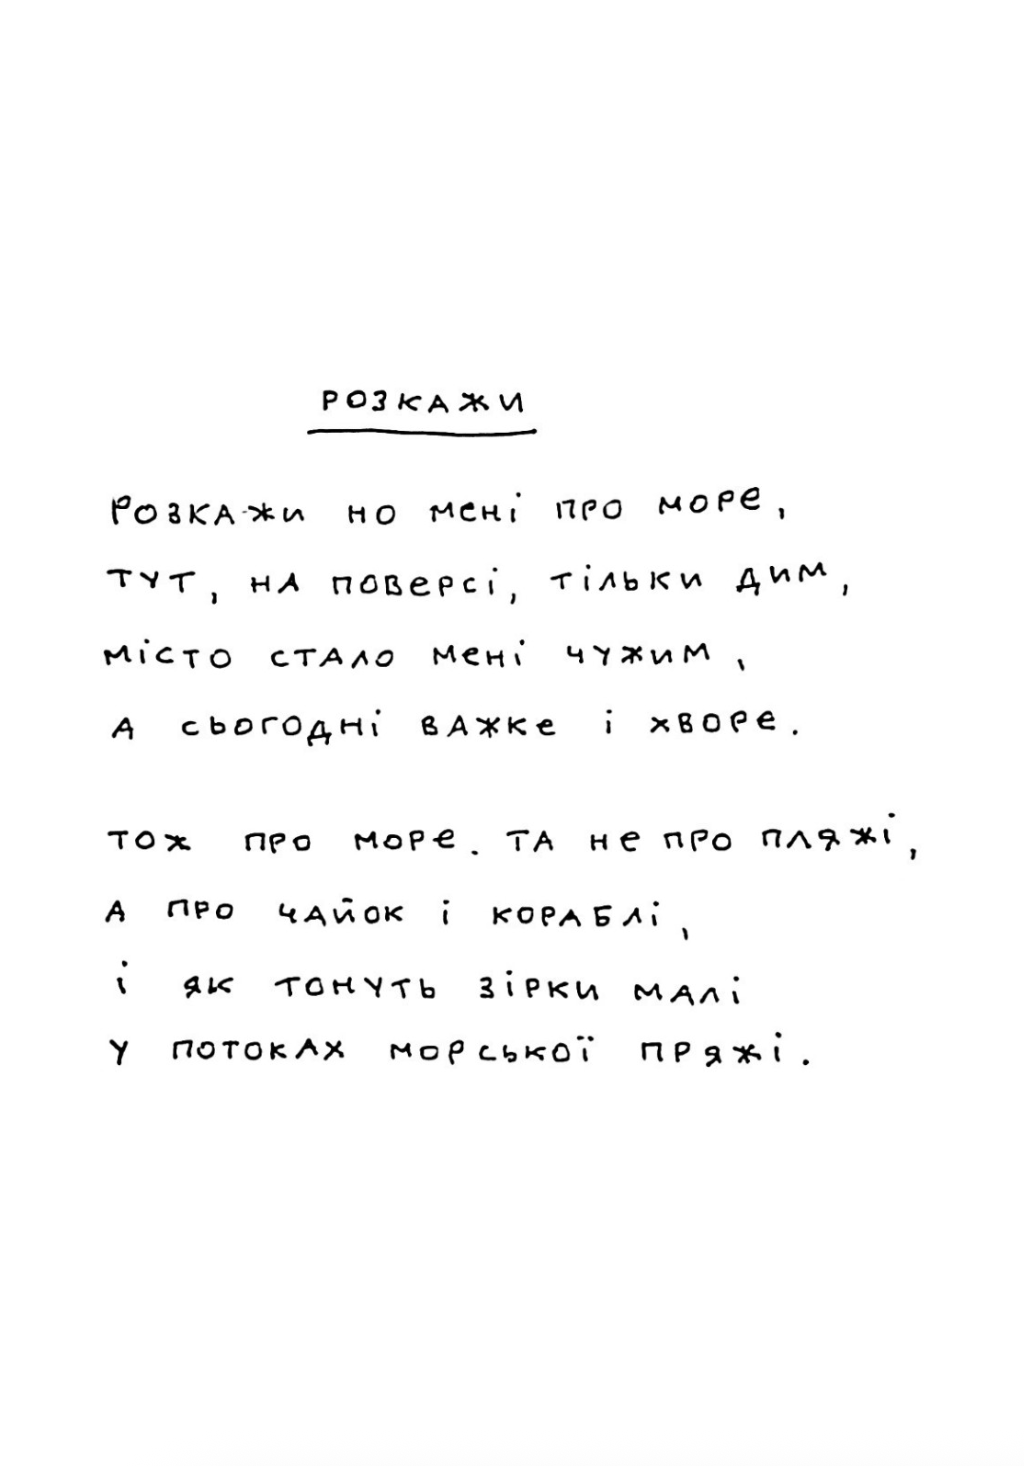 РОЗКАЖИ
РОЗКАЖИ НО МЕНІ ПРО МОРЕ,
ТУТ, НА ПОВЕРСІ, ТІЛЬКИ ДИМ,
МІСТО СТАЛО МЕНІ ЧУЖИМ,
А СЬОГОДНІ ВАЖКЕ І ХВОРЕ.
ТОЖ ПРО МОРЕ. ТА НЕ ПРО ПЛЯЖІ,
А ПРО ЧАЙОК І КОРАБЛІ,
І ЯК ТОНУТЬ ЗІРКИ МАЛІ
У ПОТОКАХ МОРСЬКОЇ ПРЯЖІ.